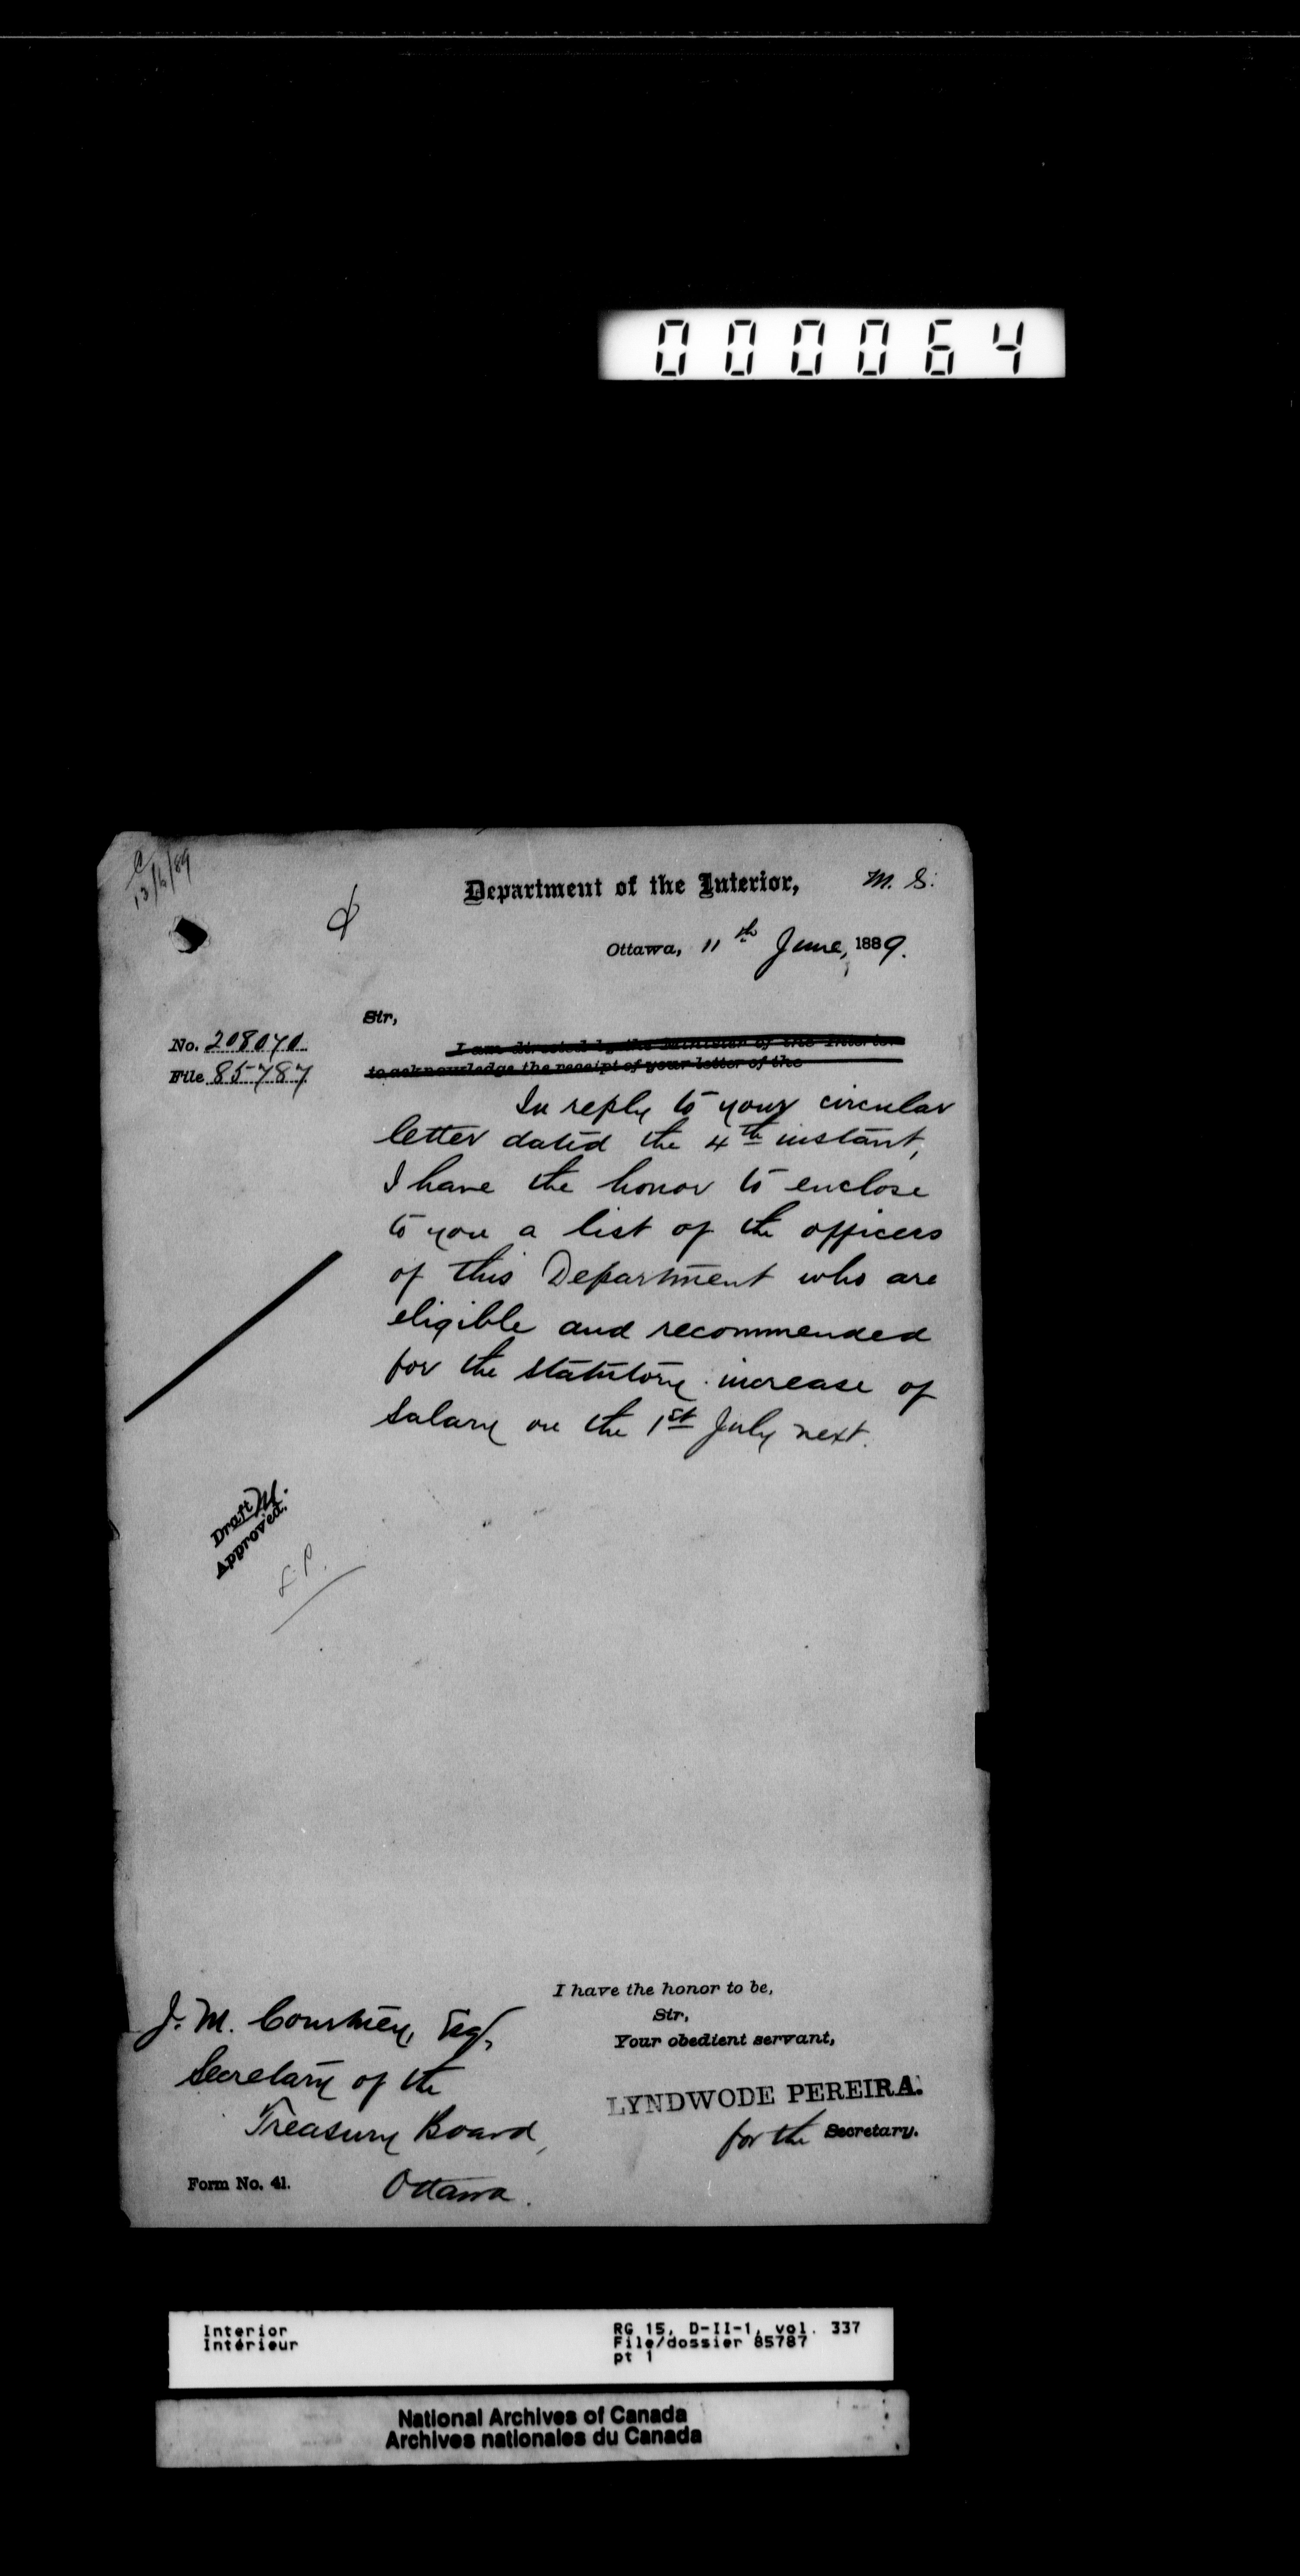 000064
C
13/6/89
Department of the Interior,
M. S.
Ottawa, 11th June, 1889.
Sir,
No. 208070
File 85787
I am directed by the Minister of the Interior
to acknowledge the receipt of your letter of the
In reply to your circular
letter dated the 4th instant,
I have the honor to enclose
to you a list of the officers
of this Department who are
eligible and recommended
for the statutory increase of
salary on the 1st July next.
Draft M.
Approved.
L.P.
I have the honor to be,
Sir,
Your obedient servant,
LYNDWODE PEREIRA.
for the Secretary.
J. M. Courtney, Esq,
Secretary of the
Treasury Board,
Ottawa.
Form No. 41.
Interior
Intérieur
RG 15, D-II-1, vol. 337
File/dossier 85787
pt 1
National Archives of Canada
Archives nationales du Canada